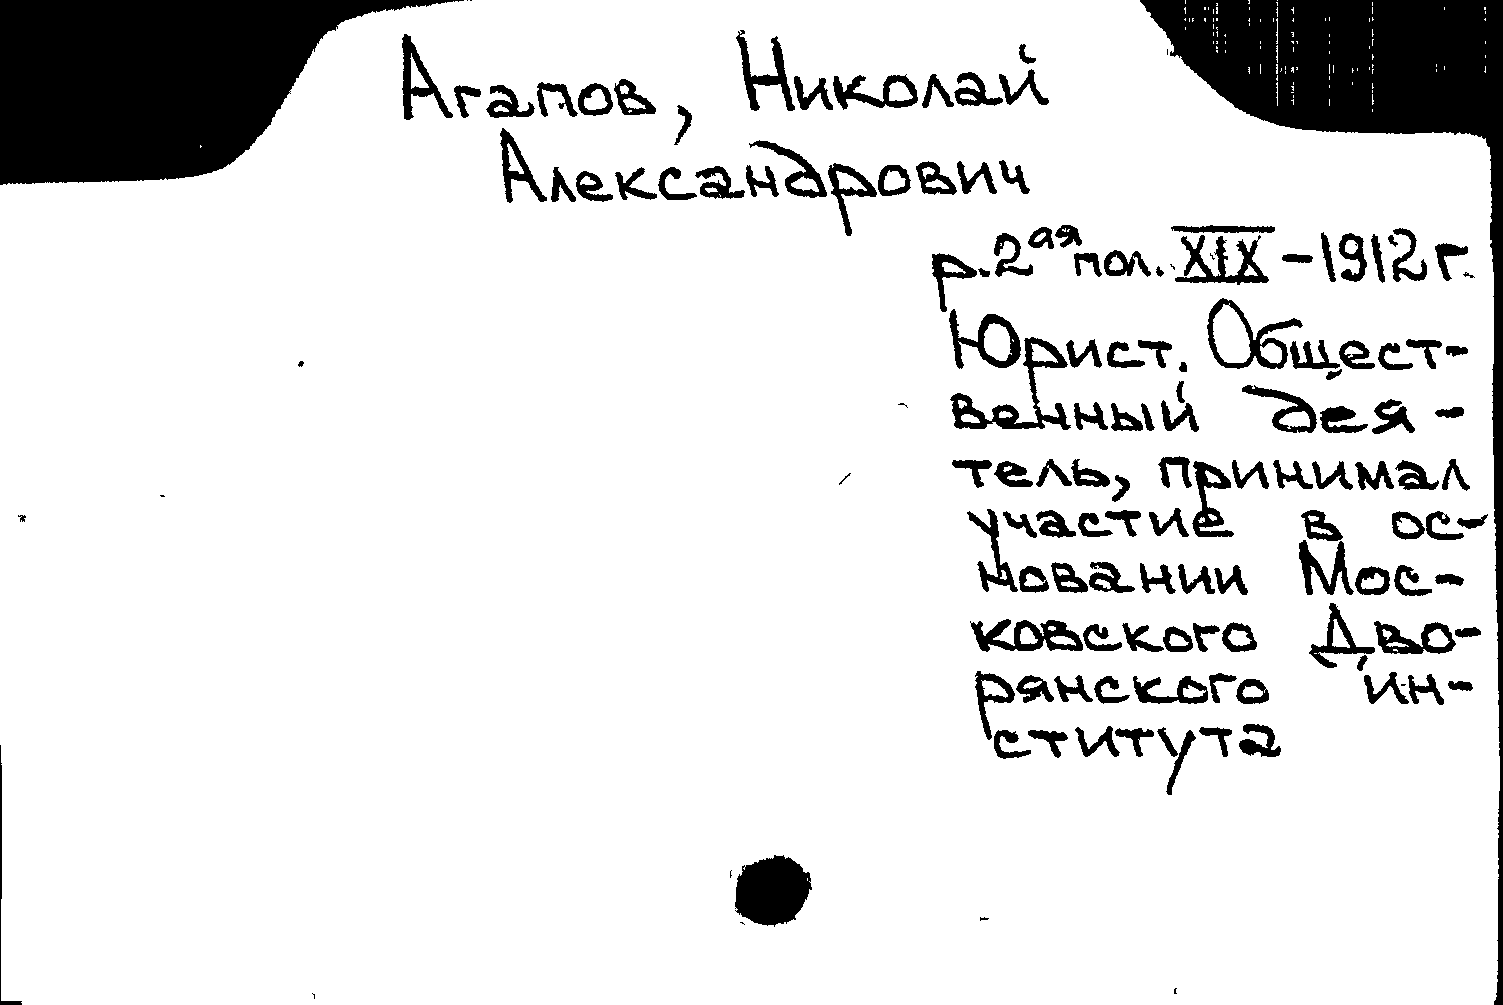 Агапов, Николай
Александрович
р. 2ая пол. XIX – 1912 г.
Юрист. Общест-
венный дея-
тель, принимал
участие в ос-
новании Мос-
ковского Дво-
рянского ин-
ститута